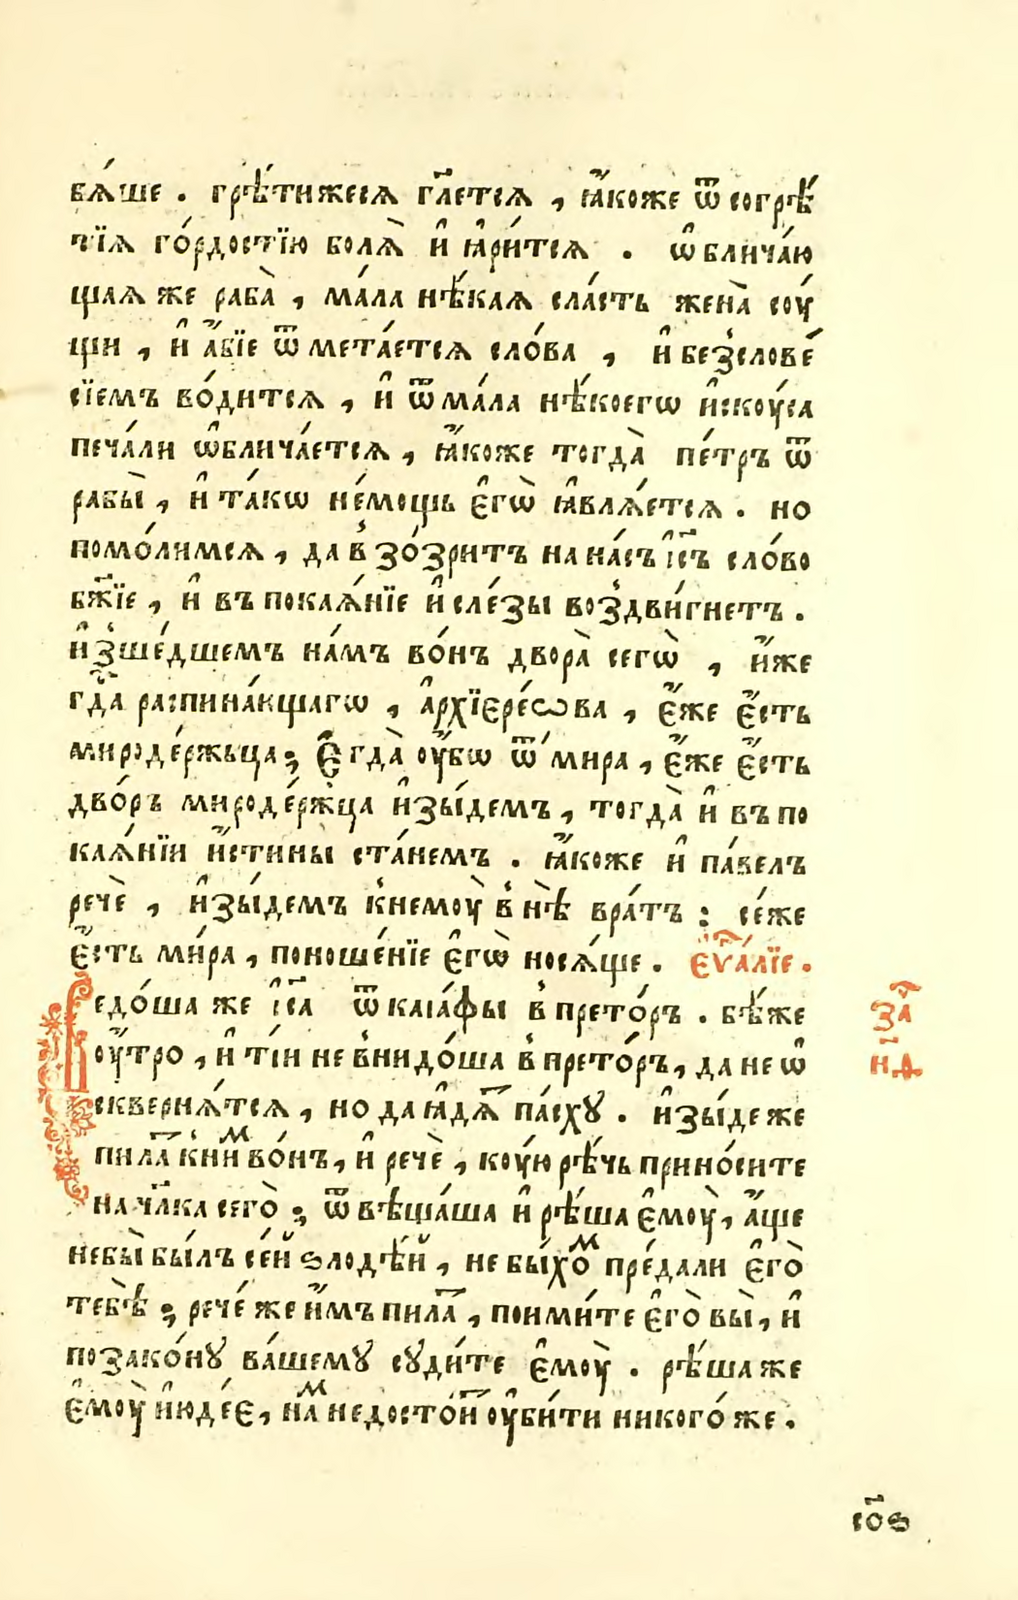 вѧ́ше . грѣ́тижесѧ гл҃етсѧ , ꙗ҆́коже ѿ согрѣ́
тїѧ го́рдостїю болѧ̀ и҆ ꙗ҆ри́тсѧ . ѡ҆блича́ю
щаѧ же раба̀ , ма́ла нѣ́каѧ сла́сть жена̀ соу́
щи , и҆ а҆́бїе ѿмета́етсѧ сло́ва , и҆ безслове́
сїемъ во́дитсѧ , и҆ ѿ ма́ла нѣ́коегѡ и҆скоу́са
печа́ли ѡ҆блича́етсѧ , ꙗ҆́коже тогда̀ пе́тръ ѿ
рабы̀ , и҆ та́кѡ не́мощь є҆гѡ̀ ꙗ҆влѧ́етсѧ . но
помо́лимсѧ , да в̾зо́зритъ на на́съ і҆с҃ъ сло́во
бж҃їе , и҆ въ покаѧ́нїе и҆ сле́зы воздви́гнетъ .
и҆зше́дшемъ на́мъ во́нъ двора̀ сегѡ̀ , и҆́же
гд҃а распина́ющагѡ , а҆рхїєре́ѡва , є҆́же є҆́сть
мироде́ржьца ; Є҆гда̀ оу҆́бѡ ѿ мира , є҆́же є҆́сть
дво́ръ мироде́ржца и҆зы́демъ , тогда̀ и҆ въ по
каѧ́нїи и҆́стины ста́немъ . ꙗ҆́коже и҆ па́велъ
речѐ , и҆зы́демъ к̾немоу̀ в̾нѣ̀ вра́тъ : се́же
є҆́сть ми́ра , поноше́нїе є҆гѡ̀ носѧ́ще . еѵⷢ҇а́лїе .
Ведо́ша же і҆с҃а ѿ каіа́фы в̾прето́ръ . бѣ́же
оу҆́тро , и҆ ті́и не в̾нидо́ша в̾прето́ръ , да не ѡ҆
сквернѧ́тсѧ , но да ꙗ҆дѧ́т па́сху . и҆зы́де же
пила́т к̾ни́м во́нъ , и҆ речѐ , коу́ю рѣ́чь прино́сите
на чл҃ка сего̀ ; ѿвѣща́ша и҆ рѣ́ша є҆моу̀ , а҆́ще
небы̀ бы́лъ се́й ѕлодѣ́й , не бы́хоⷨ пре́дали є҆го̀
тебѣ̀ ; рече́ же и҆́мъ пила́т , поими́те є҆го̀ вы̀ , и҆
позако́ну ва́шему суди́те є҆моу̀ . рѣ́ша же
є҆моу̀ и҆юде́є , на́ⷨ недосто́ит оу҆би́ти никого́же .
за҃
н҃д
со҃ѕ